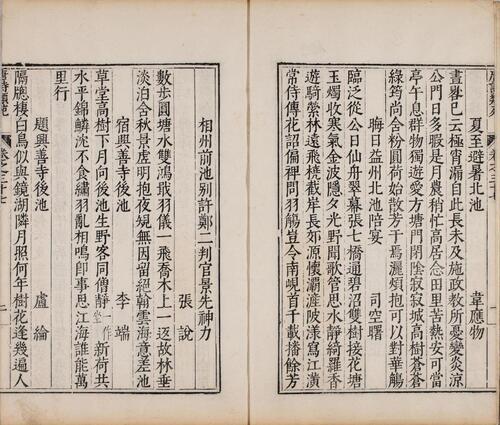 夏至避暑北池　韋應物
晝晷已云極宵漏自此長未及施政教所憂變炎涼
公門日多暇是月農稍忙高居念田里苦熱安可當
亭午息群物獨遊愛方塘門閉陰寂寂城高樹蒼蒼
綠筠尚含粉圓荷始散芳于焉灑煩抱可以對華觴
晦日益州北池陪宴　司空曙
臨泛從公日仙舟翠幕張七橋通碧沼雙樹接花塘
玉燭收寒氣金波隱夕光野聞歌管思水靜綺羅香
遊騎縈林遠飛橈截岸長郊源懷灞滻陂漾寫江潢
常侍傳花詔偏裨問羽觴豈令南峴首千載播餘芳
相州前池別許鄭二判官景先神力
張說
數步圓塘水雙鴻戢羽儀一飛喬木上一返故林垂
淡泊含秋景虛明抱夜規無因留絕翰雲海意差池
宿興善寺後池　李端
草堂高樹下月向後池生野客同僧靜一作新荷共
水平錦鱗沈不食繡羽亂相鳴即事思江海誰能萬
里行
題興善寺後池　盧綸
隔牕棲白鳥似與鏡湖隣月照何年樹花逢幾遍人
卷之三十七